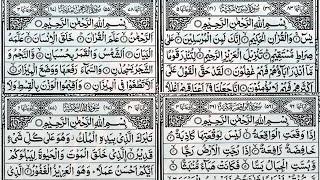 بِسْمِ اللهِ الرَّحْمٰنِ الرَّحِيْمِ
يٰسٓ وَالْقُرْاٰنِ الْحَكِيْمِ اِنَّكَ لَمِنَ الْمُرْسَلِيْنَ عَلٰى
صِرَاطٍ مُّسْتَقِيْمٍ تَنْزِيْلَ الْعَزِيْزِ الرَّحِيْمِ لِتُنْذِرَ قَوْمًا
مَّآ اُنْذِرَ اٰبَآؤُهُمْ فَهُمْ غٰفِلُوْنَ لَقَدْ حَقَّ الْقَوْلُ عَلٰٓى
بِسْمِ اللهِ الرَّحْمٰنِ الرَّحِيْمِ
اَلرَّحْمٰنُ عَلَّمَ الْقُرْاٰنَ خَلَقَ الْاِنْسَانَ عَلَّمَهُ
الْبَيَانَ اَلشَّمْسُ وَالْقَمَرُ بِحُسْبَانٍ وَّالنَّجْمُ وَ
الشَّجَرُ يَسْجُدٰنِ وَالسَّمَآءَ رَفَعَهَا وَوَضَعَ الْمِيْزَانَ
اَلَّا تَطْغَوْا فِى الْمِيْزَانِ وَاَقِيْمُوا الْوَزْنَ بِالْقِسْطِ وَلَا
بِسْمِ اللهِ الرَّحْمٰنِ الرَّحِيْمِ
اِذَا وَقَعَتِ الْوَاقِعَةُ لَيْسَ لِوَقْعَتِهَا كَاذِبَةٌ
خَافِضَةٌ رَّافِعَةٌ اِذَا رُجَّتِ الْاَرْضُ رَجًّا وَّ
بُسَّتِ الْجِبَالُ بَسًّا فَكَانَتْ هَبَآءً مُّنْۢبَثًّا
بِسْمِ اللهِ الرَّحْمٰنِ الرَّحِيْمِ
تَبٰرَكَ الَّذِيْ بِيَدِهِ الْمُلْكُ وَهُوَ عَلٰى كُلِّ شَيْءٍ
قَدِيْرٌ الَّذِيْ خَلَقَ الْمَوْتَ وَالْحَيٰوةَ لِيَبْلُوَكُمْ
اَيُّكُمْ اَحْسَنُ عَمَلًا وَهُوَ الْعَزِيْزُ الْغَفُوْرُ